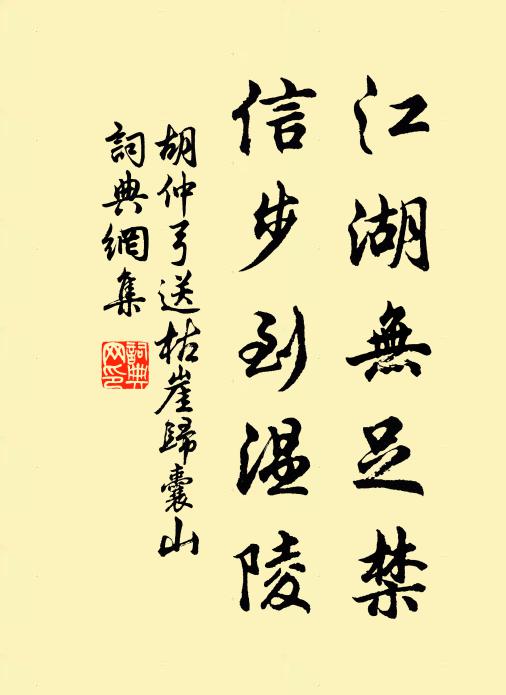 江湖無足禁
信步到温陵
胡仲弓送枯崖歸囊山
詞典網集
詞典网印